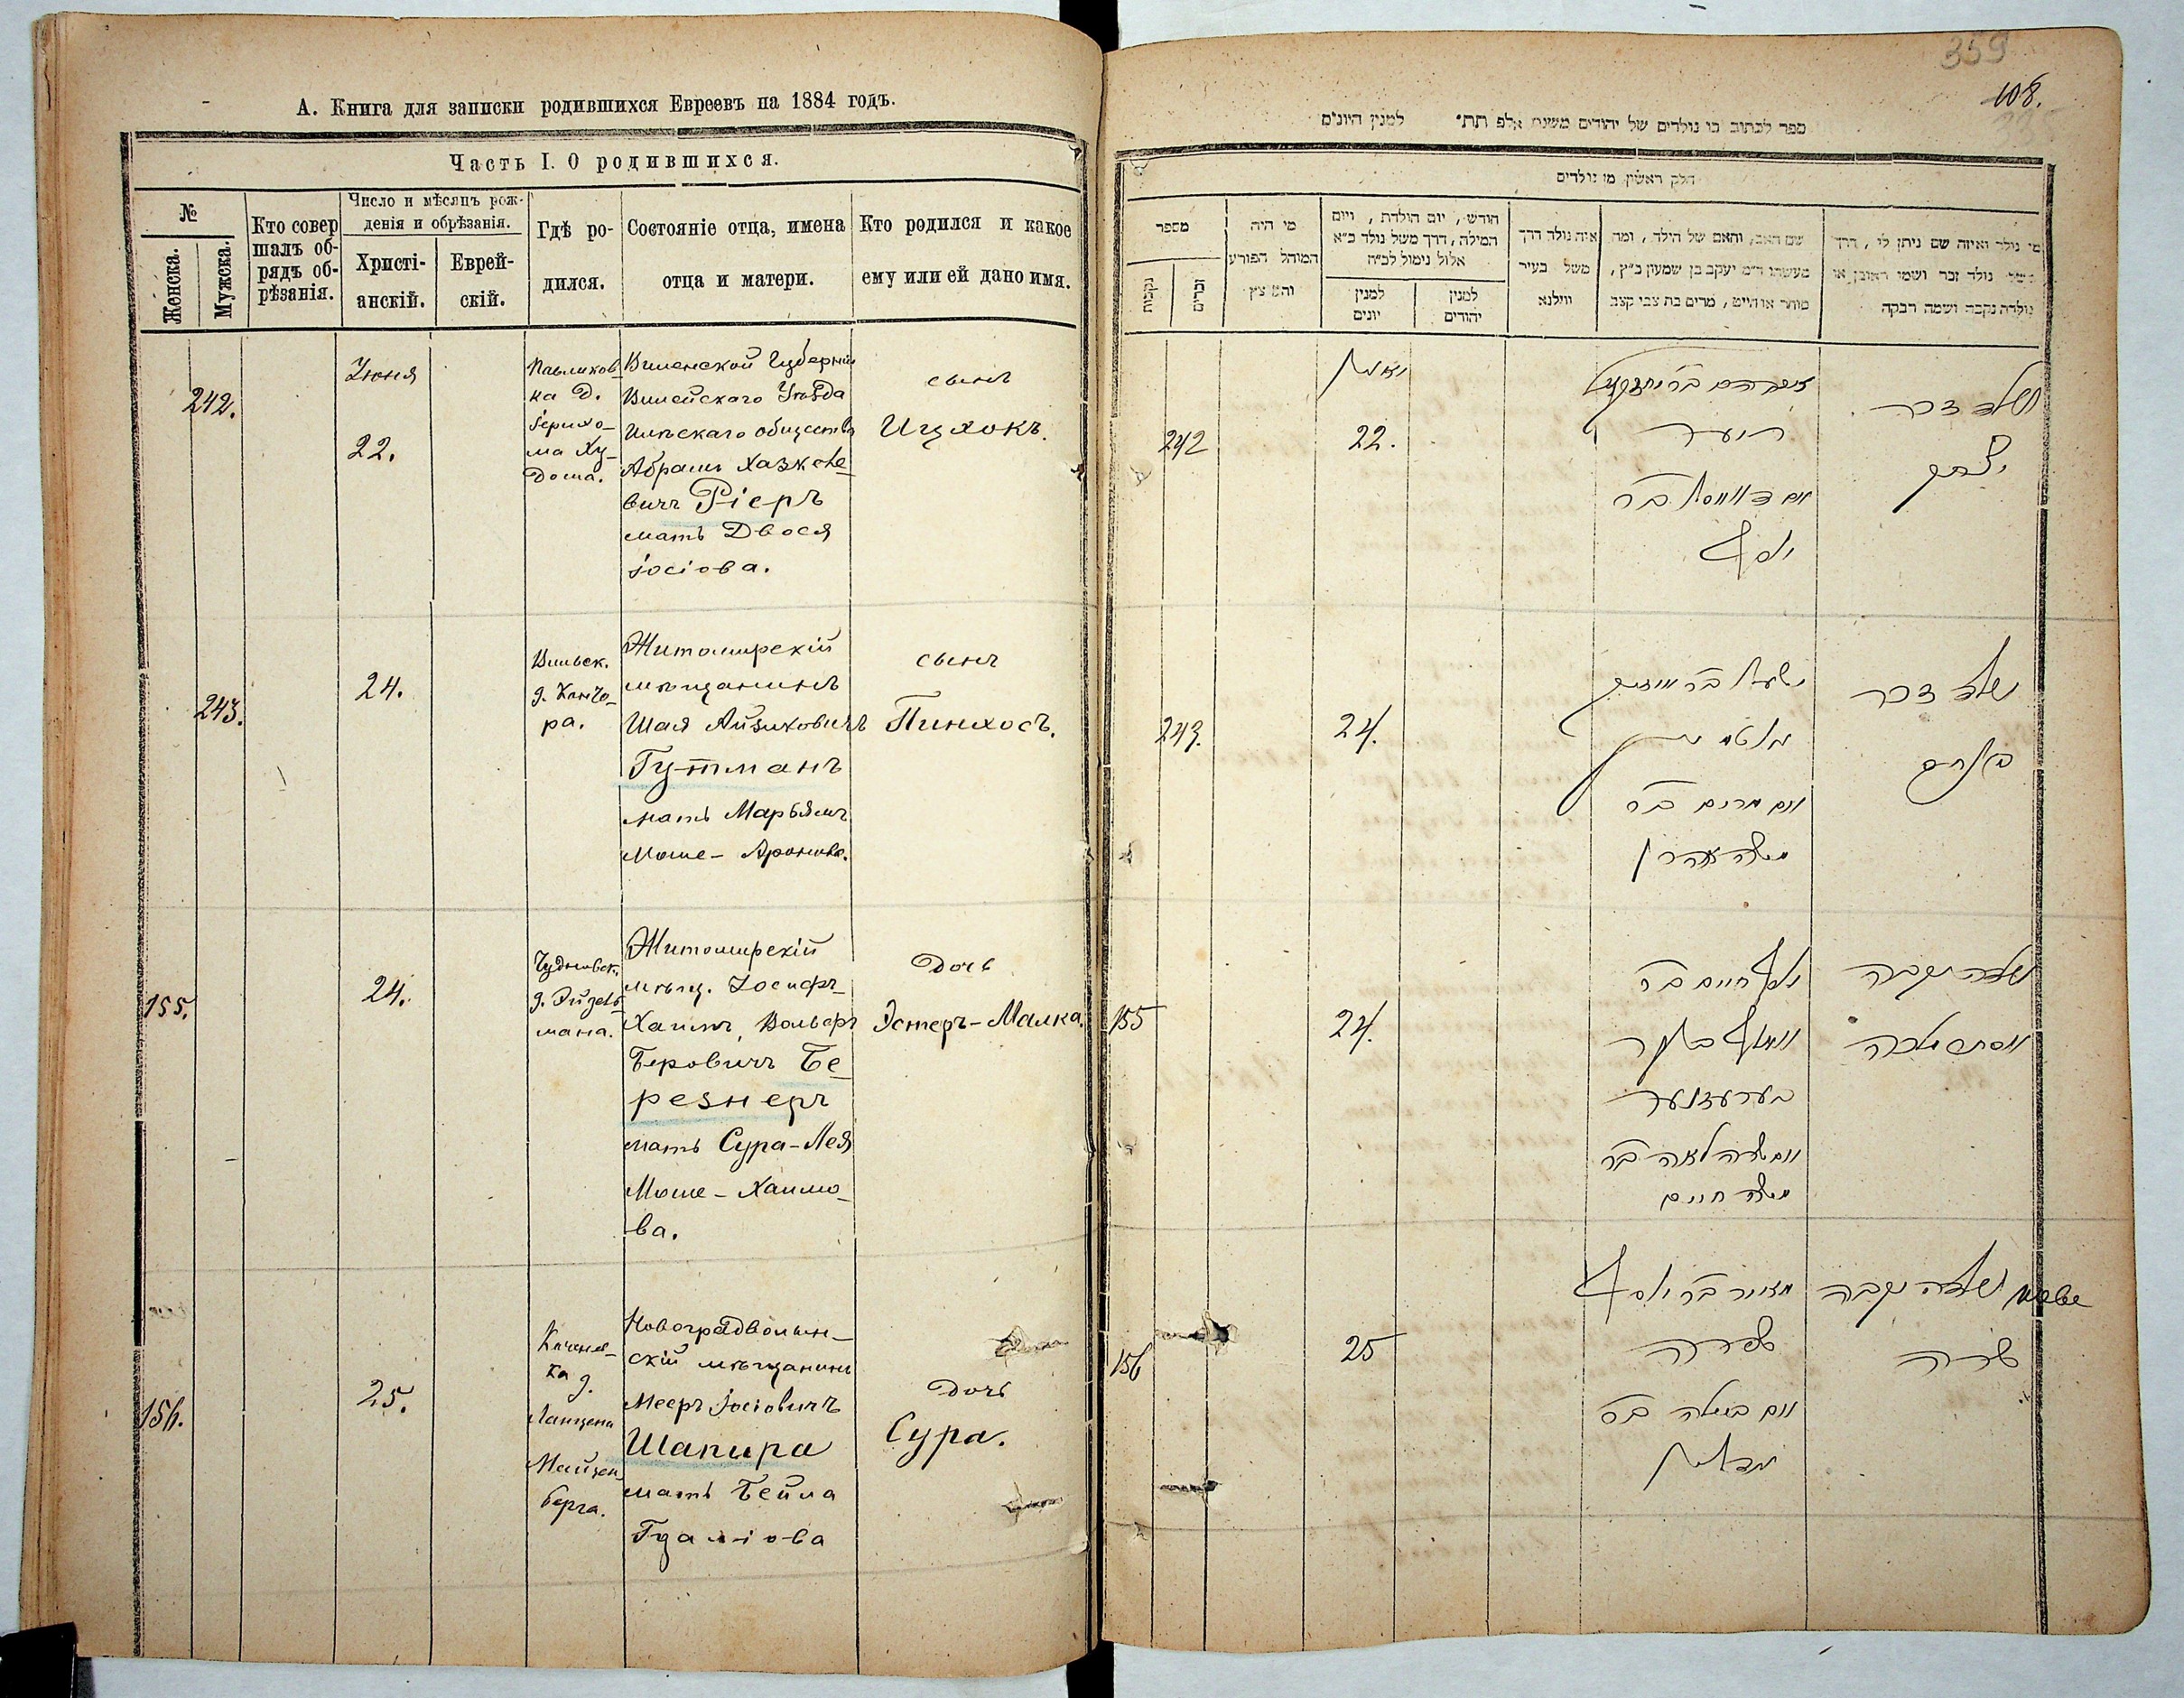 А. Книга для записки родившихся Евреевъ на 1884 годъ.
Часть I. О родившихся.
№
Женска.
Мужска.
Кто совер
шалъ об-
рядъ об-
рѣзанія.
Число и мѣсяцъ рож-
денія и обрѣзанія.
Христі-
анскій.
Еврей-
скій.
Гдѣ ро-
дился.
Состояніе отца, имена
отца и матери.
Кто родился и какое
ему или ей дано имя.
242.
Іюня
22.
Павликов-
ка д.
ма Ху-
Виленской Губерніи
Вилейскаго Уѣзда
Илѣскаго общества
Абрамъ Хазкеле-
вичъ Ріеръ
мать Двося
Іосіова.
сынъ
Ицхокъ.
243.
24.
Вильск.
д. Канто-
ра.
Житомирскій
мѣщанинъ
Шая Айзиковичъ
Гутманъ
мать Марьямъ
Моше-Аронова.
сынъ
Пинхосъ.
155.
24.
Чудновск.
мана.
Житомирскій
мѣщ. Іосифъ-
Хаимъ Вольфъ
Беровичъ Бе-
резнеръ
мать Сура-Лея
Моше-Хаимо-
ва.
Дочь
Эстеръ-Малка.
156.
25.
ка д.
Майзен-
берга.
Новоградволын-
скій мѣщанинъ
Мееръ Іосіовичъ
Шапира
мать Бейла
Гдаліова
дочь
Сура.
359
108.
ספר לכתוב בו נולדים של יהודים משנת אלף תת״ למנין היונים
חלק ראשון מן נולדים
מספר
נקבות
זכרים
מי היה
המוהל הפורע
והמצץ
חודש, יום הולדת, ויום
המילה, דרך משל נולד כ״א
אלול נימול לכ״ח
למנין
יונים
למנין
יהודים
איה נולד דרך
משל בעיר
ווילנא
שם האב, והאם של הילד, ומה
מעשהו ד״מ יעקב בן שמעון כ״ץ,
סוחר או חייט, מרים בת צבי קצב
מי נולד ואיזה שם ניתן לו, דרך
משל נולד זכר ושמו ראובן או
נולדה נקבה ושמה רבקה
242
22.
נולד זכר
יצחק
יוסף
243.
24.
נולד זכר
פנחס
ואם מרים בת
משה אהרן
155
24.
נולדה נקבה
אסתר מלכה
יוסף חיים בר
בערעזנער
ואם שרה לאה בת
משה חיים
156
25
נולדה נקבה
שרה
מאיר בר יוסף
שפירה
ואם ביילה בת
גדליה